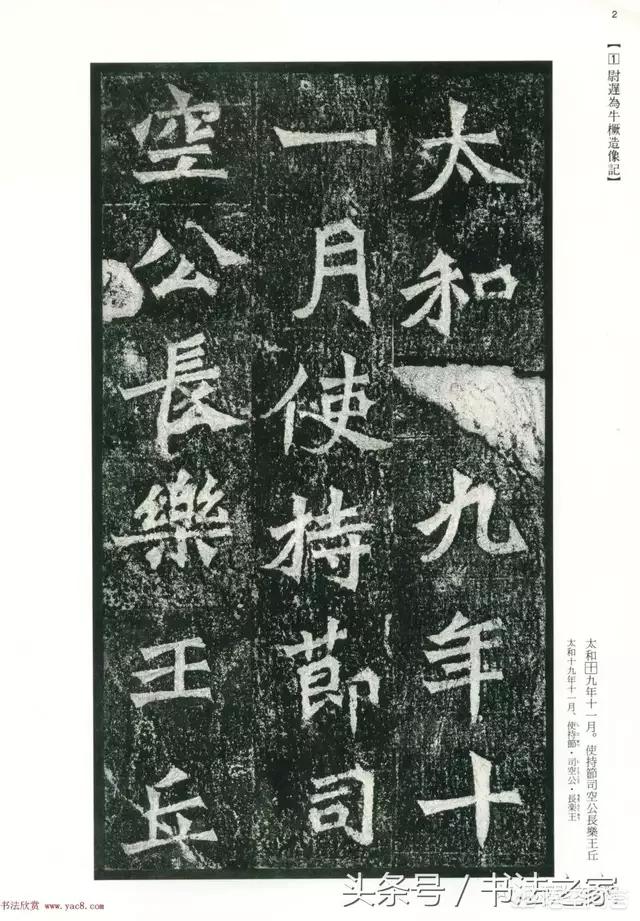 2
【1 尉遲為牛橛造像記】
太和九年十
一月使持節司
空公長樂王丘
太和十九年十一月。使持節司空公長樂王丘
太和十九年十一月、使持節・司空公・長楽王
头条号／书法之家
书法欣赏 www.yac8.com